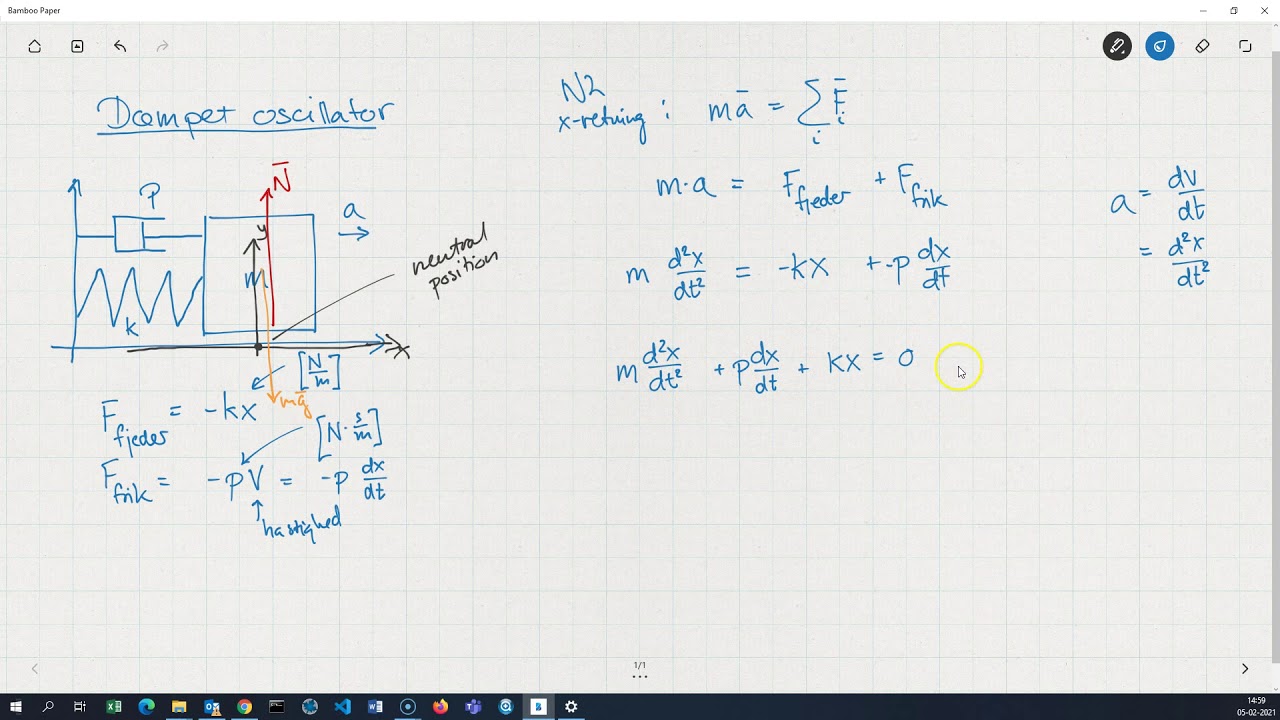 Bamboo Paper
Dæmpet oscillator
P
N̅
a
y
m
k
x
neutral position
[N/m]
mg̅
F_fjeder = -kx
[N · s/m]
F_frik = -pV = -p dx/dt
hastighed
N2
x-retning : ma̅ = ∑_i F̅_i
m·a = F_fjeder + F_frik
m d²x/dt² = -kx + -p dx/dt
m d²x/dt² + p dx/dt + kx = 0
a = dv/dt
= d²x/dt²
1/1
14:59
05-02-2021